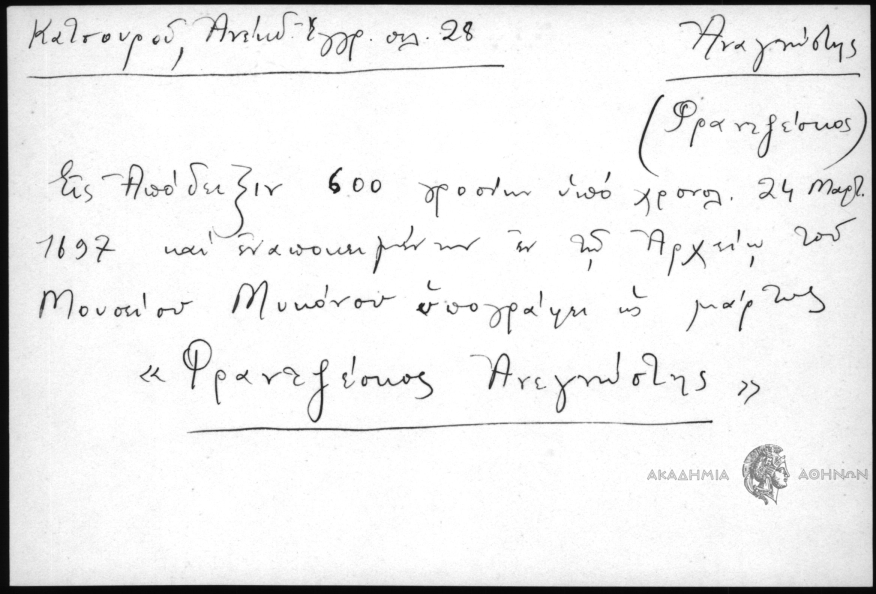 Κατσουροῦ, Ἀνέκδ. Ἔγγρ. σελ. 28
Ἀναγνώστης
(Φραντζέσκος)
Εἰς Ἀπόδειξιν 600 γροσίων ὑπό χρονολ. 24 Μαρτ.
1697 καί ἐναποκειμένην ἐν τῷ Ἀρχείῳ τοῦ
Μουσείου Μυκόνου ὑπογράφει ὡς μάρτυς
« Φραντζέσκος Ἀνεγνώστης »
ΑΚΑΔΗΜΙΑ ΑΘΗΝΩΝ